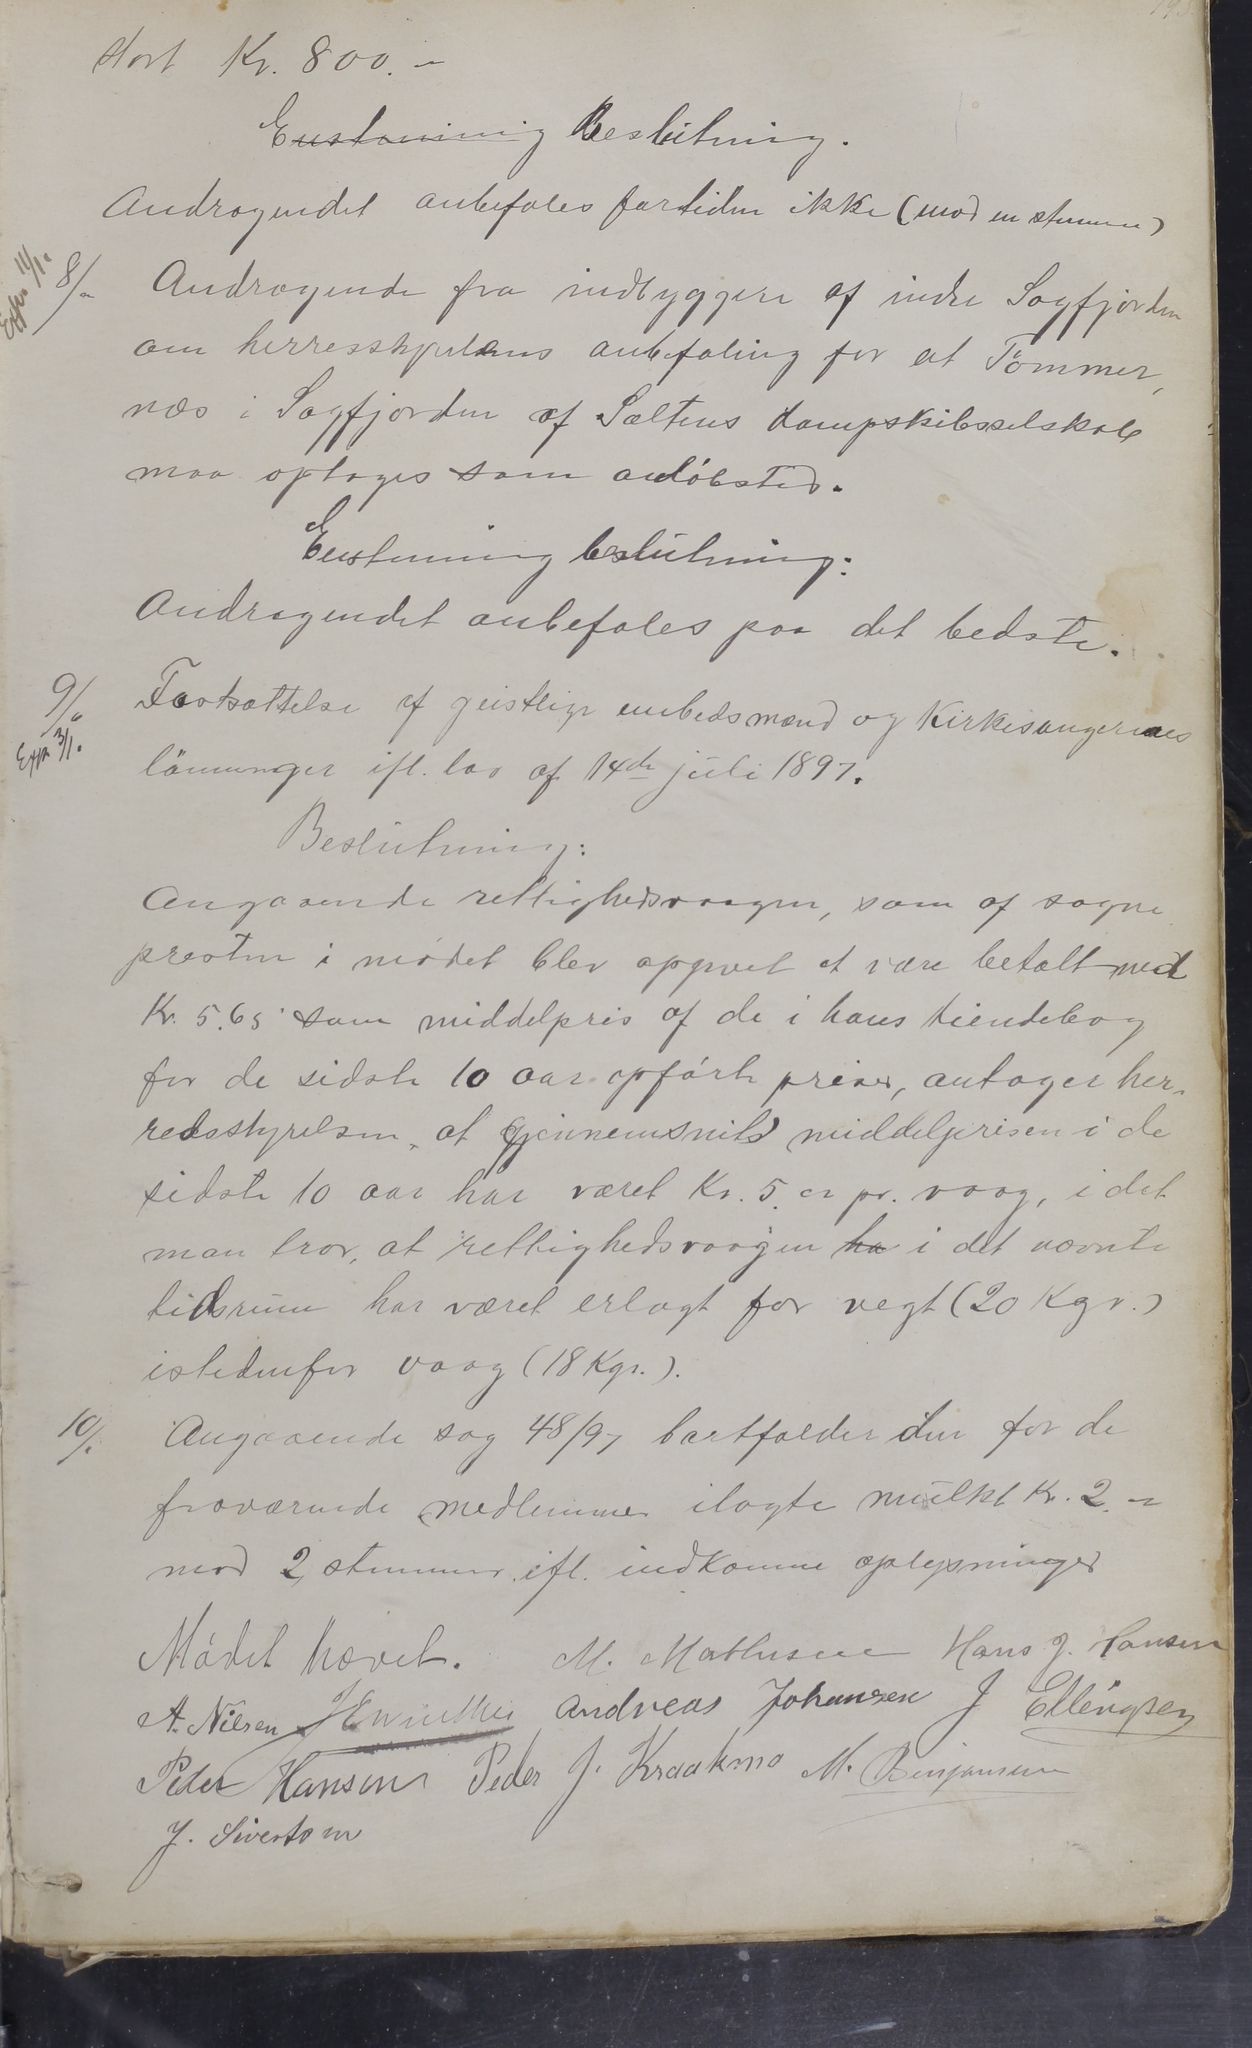 stort Kr. 800.-
Enstemmig Beslutning.
Andragendet anbefales fortiden ikke (mod en stemme)
8/ Andragende fra indbyggere af indre Sagfjorden
om herresstyrelsens anbefaling for at Tømmer,
næs i Sagfjorden af Saltens dampskibsselskab
maa optages som anløbsted.
Enstemmig beslutning:
Andragendet anbefales paa det bedste.
9/ Fastsættelse af geistlige embedsmænd og Kirkesangernes
Exp. 3/1.
lønninger ifl. lov af 14de juli 1897.
Beslutning:
Angaaende rettighedsvaagen, som af sogne
presten i mødet blev opgivet at være betalt med
Kr. 5.65 som middelpris af de i hans tiendebog
for de sidste 10 aar opførte priser, antager her-
redsstyrelsen, at gjennemsnits middelprisen i de
sidste 10 aar har været Kr. 5.- pr. vaag, i det
man tror, at rettighedsvaagen ha i det nævnte
tidsrum har været erlagt for vegt (20 Kgr.)
istedenfor vaag (18 Kgr.).
10/ Angaaende sag 48/97 bortfalder den for de
fraværende medlemmer ilagte mulkt Kr. 2.-
mod 2 stemmer ifl. indkomne oplysninger
Mødet hævet. M. Mathisen Hans J. Hansen
A. Nilsen Andreas Johansen J Ellingsen
Peder Hansen Peder J. Kraakmo M. Benjaminsen
J. Sivertsen